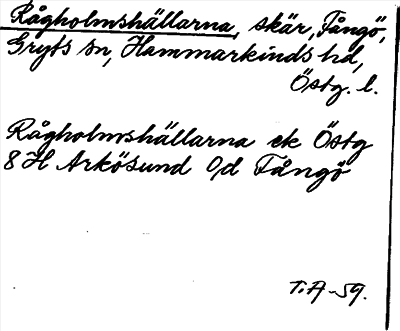 Rågholmshällarna, skär, Fångö,
Gryts sn, Hammarkinds hd,
Östg. l.
Rågholmshällarna ek Östg
8 H Arkösund O/d Fångö
T.A-59.